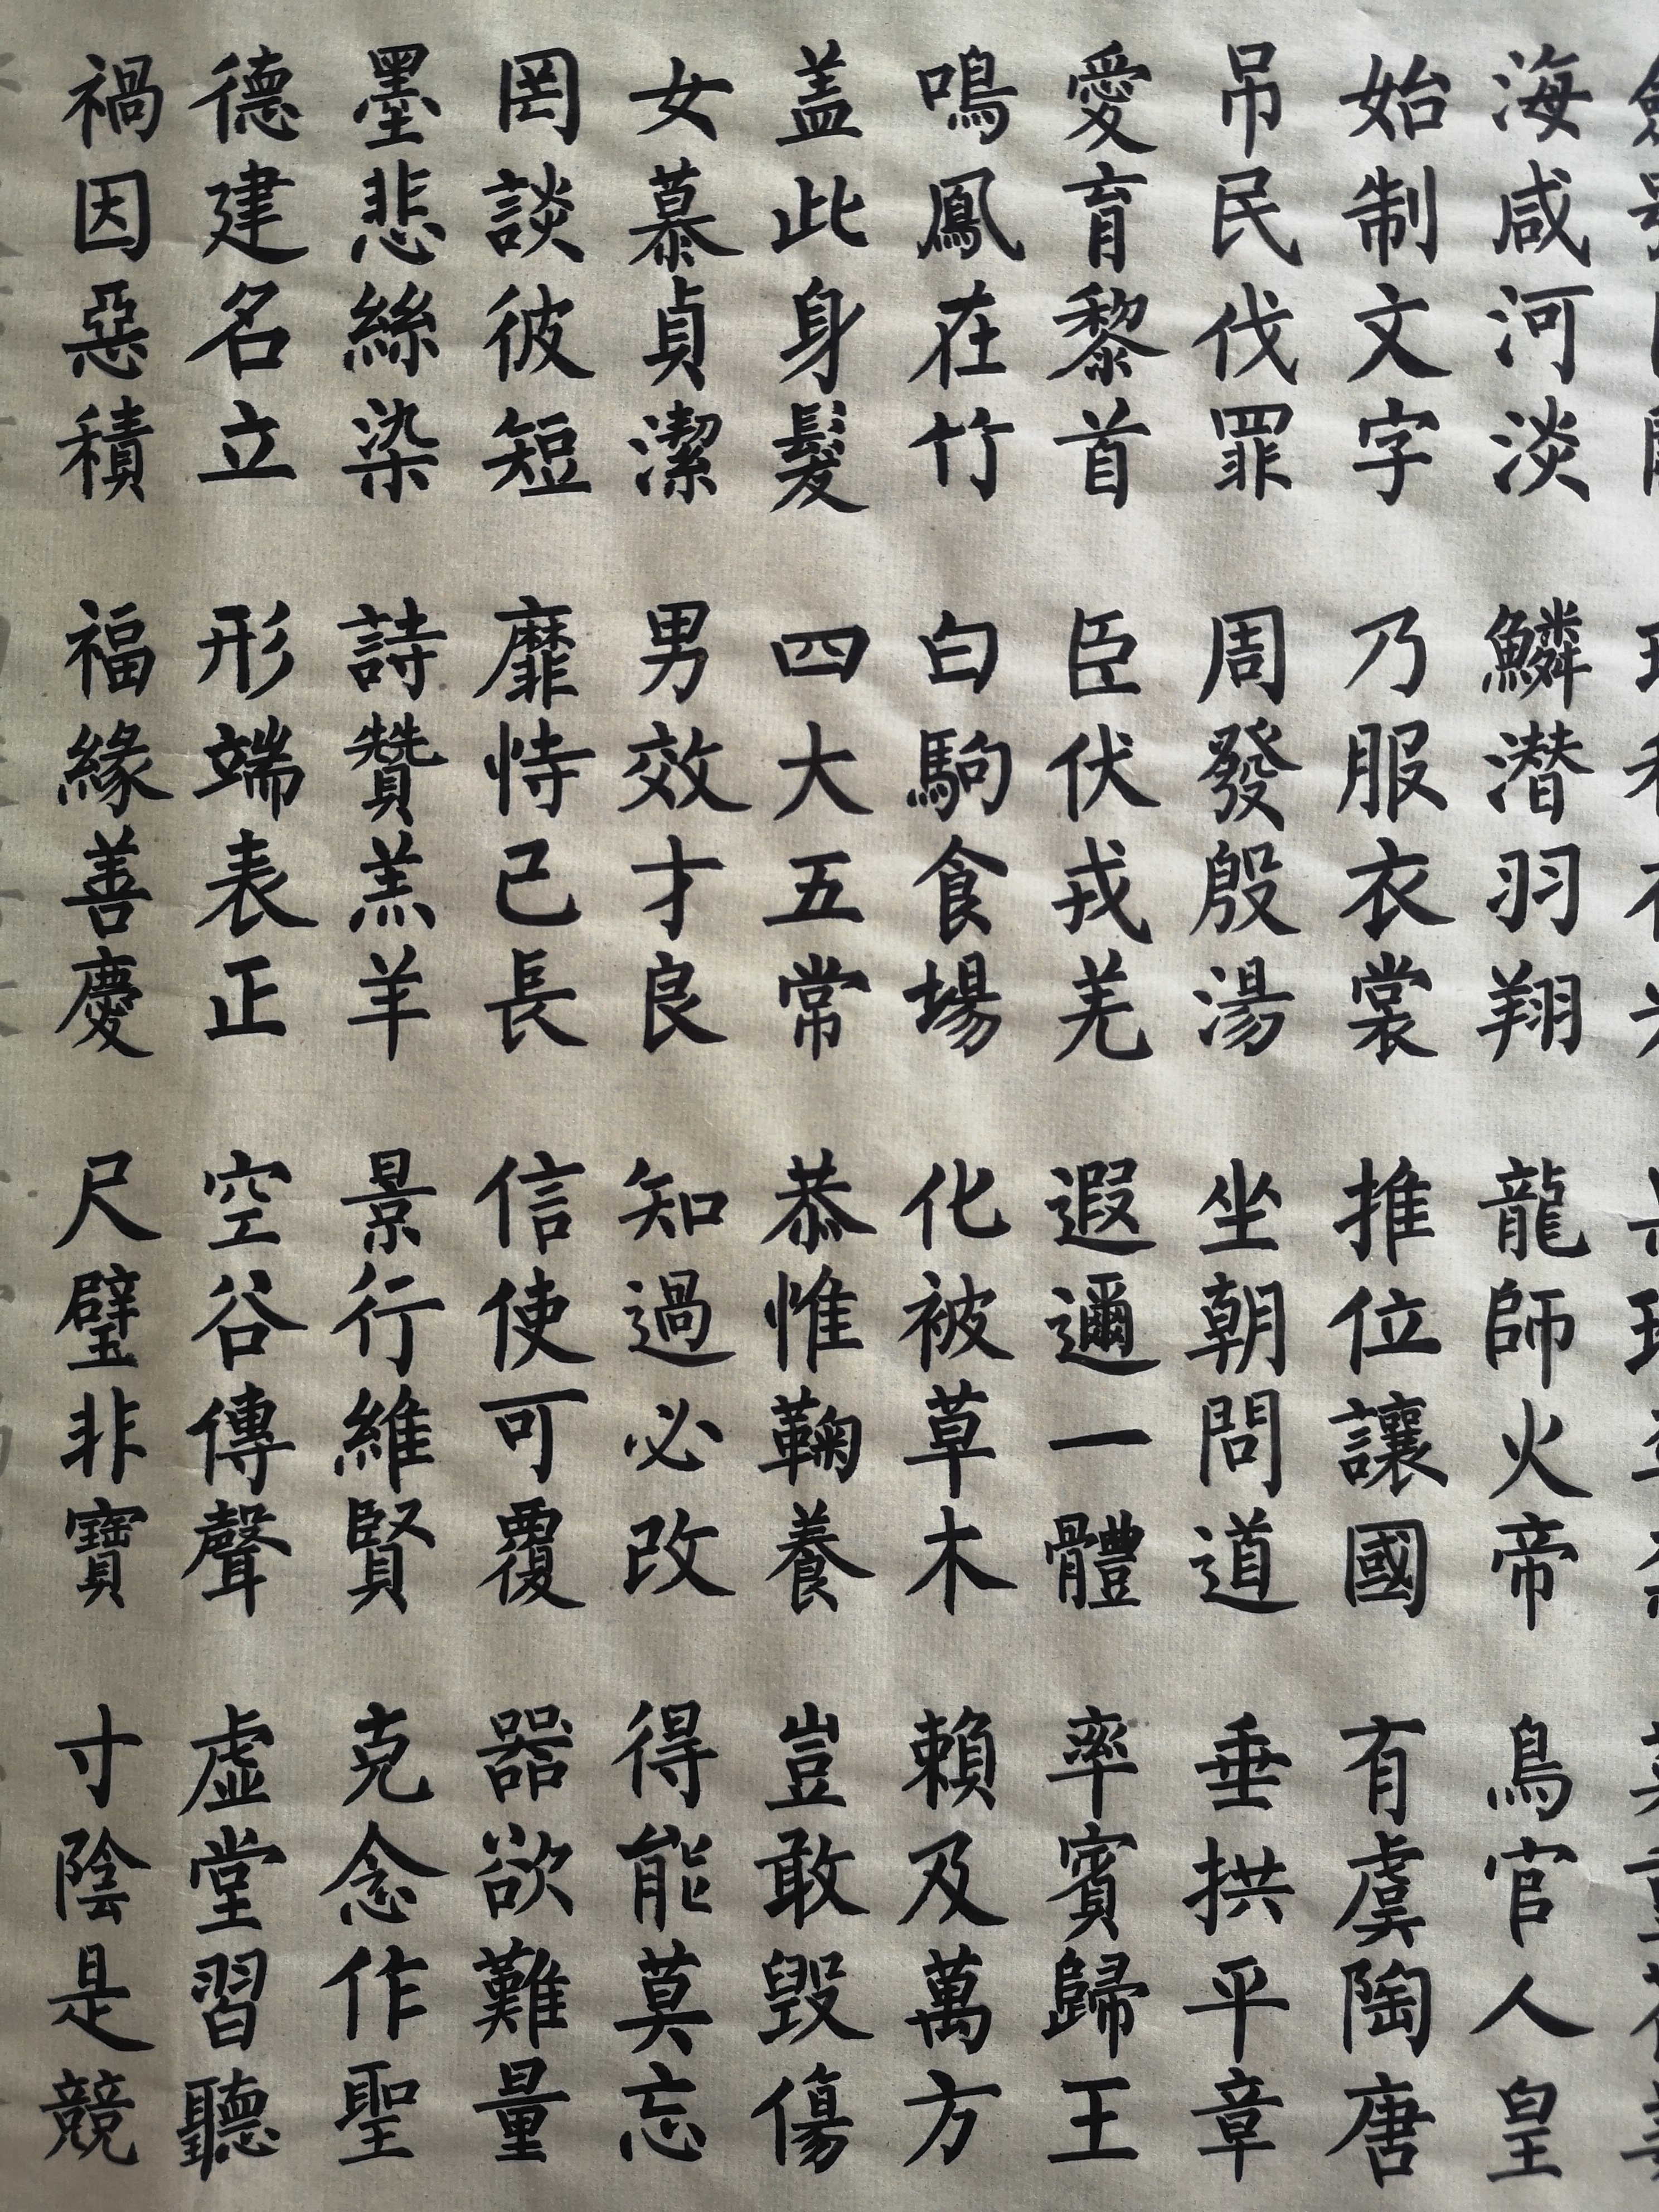 海咸河淡 鱗潛羽翔 龍師火帝 鳥官人皇
始制文字 乃服衣裳 推位讓國 有虞陶唐
吊民伐罪 周發殷湯 坐朝問道 垂拱平章
愛育黎首 臣伏戎羌 遐邇一體 率賓歸王
鳴鳳在竹 白駒食場 化被草木 賴及萬方
盖此身髮 四大五常 恭惟鞠養 豈敢毀傷
女慕貞潔 男效才良 知過必改 得能莫忘
罔談彼短 靡恃己長 信使可覆 器欲難量
墨悲絲染 詩贊羔羊 景行維賢 克念作聖
德建名立 形端表正 空谷傳聲 虛堂習聽
禍因惡積 福緣善慶 尺璧非寶 寸陰是競